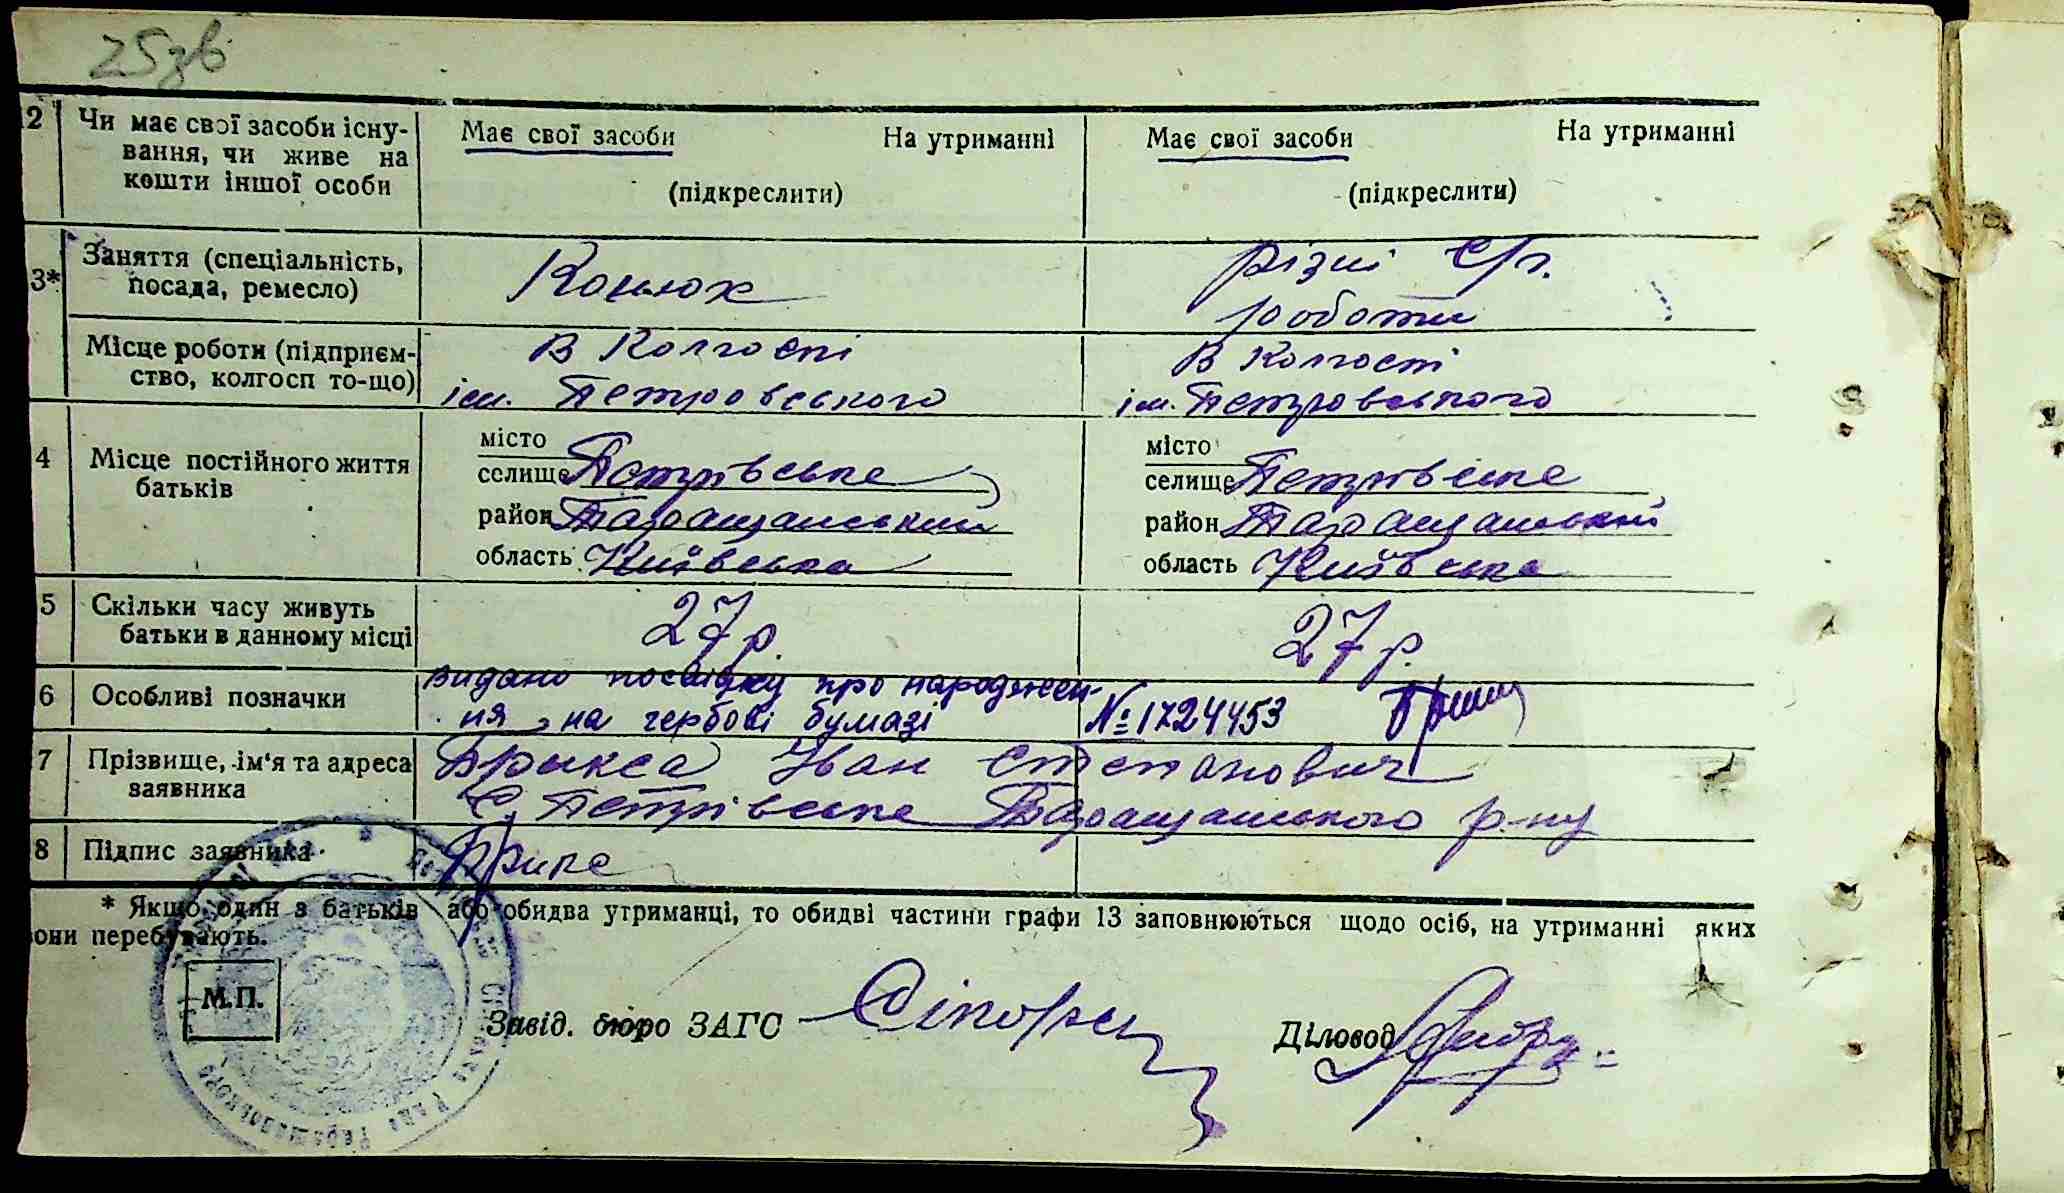 25зв
2 Чи має свої засоби існу-
вання, чи живе на
кошти іншої особи
Має свої засоби На утриманні
(підкреслити)
Має свої засоби На утриманні
(підкреслити)
3* Заняття (спеціальність,
посада, ремесло)
Конюх
різні с/г.
роботи
Місце роботи (підприєм-
ство, колгосп то-що)
В Колгоспі
ім. Петровського
В Колгоспі
ім. Петровського
4 Місце постійного життя
батьків
місто
селище Петрівське
район Таращанський
область Київська
місто
селище Петрівське
район Таращанський
область Київська
5 Скільки часу живуть
батьки в данному місці
27 р.
27 р.
6 Особливі позначки
видано посвідку про народжен-
ня на гербові бумазі №1724453
7 Прізвище, ім'я та адреса
заявника
Брыкса Іван Степанович
С. Петрівське Таращанського р-ну
8 Підпис заявника
* Якщо один з батьків або обидва утриманці, то обидві частини графи 13 заповнюються щодо осіб, на утриманні яких
вони перебувають.
М.П.
Завід. бюро ЗАГС
Діловод